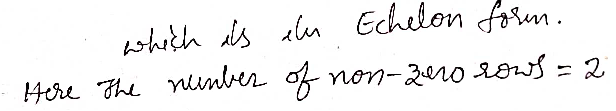 which is in Echelon form.
Here The number of non-zero rows = 2